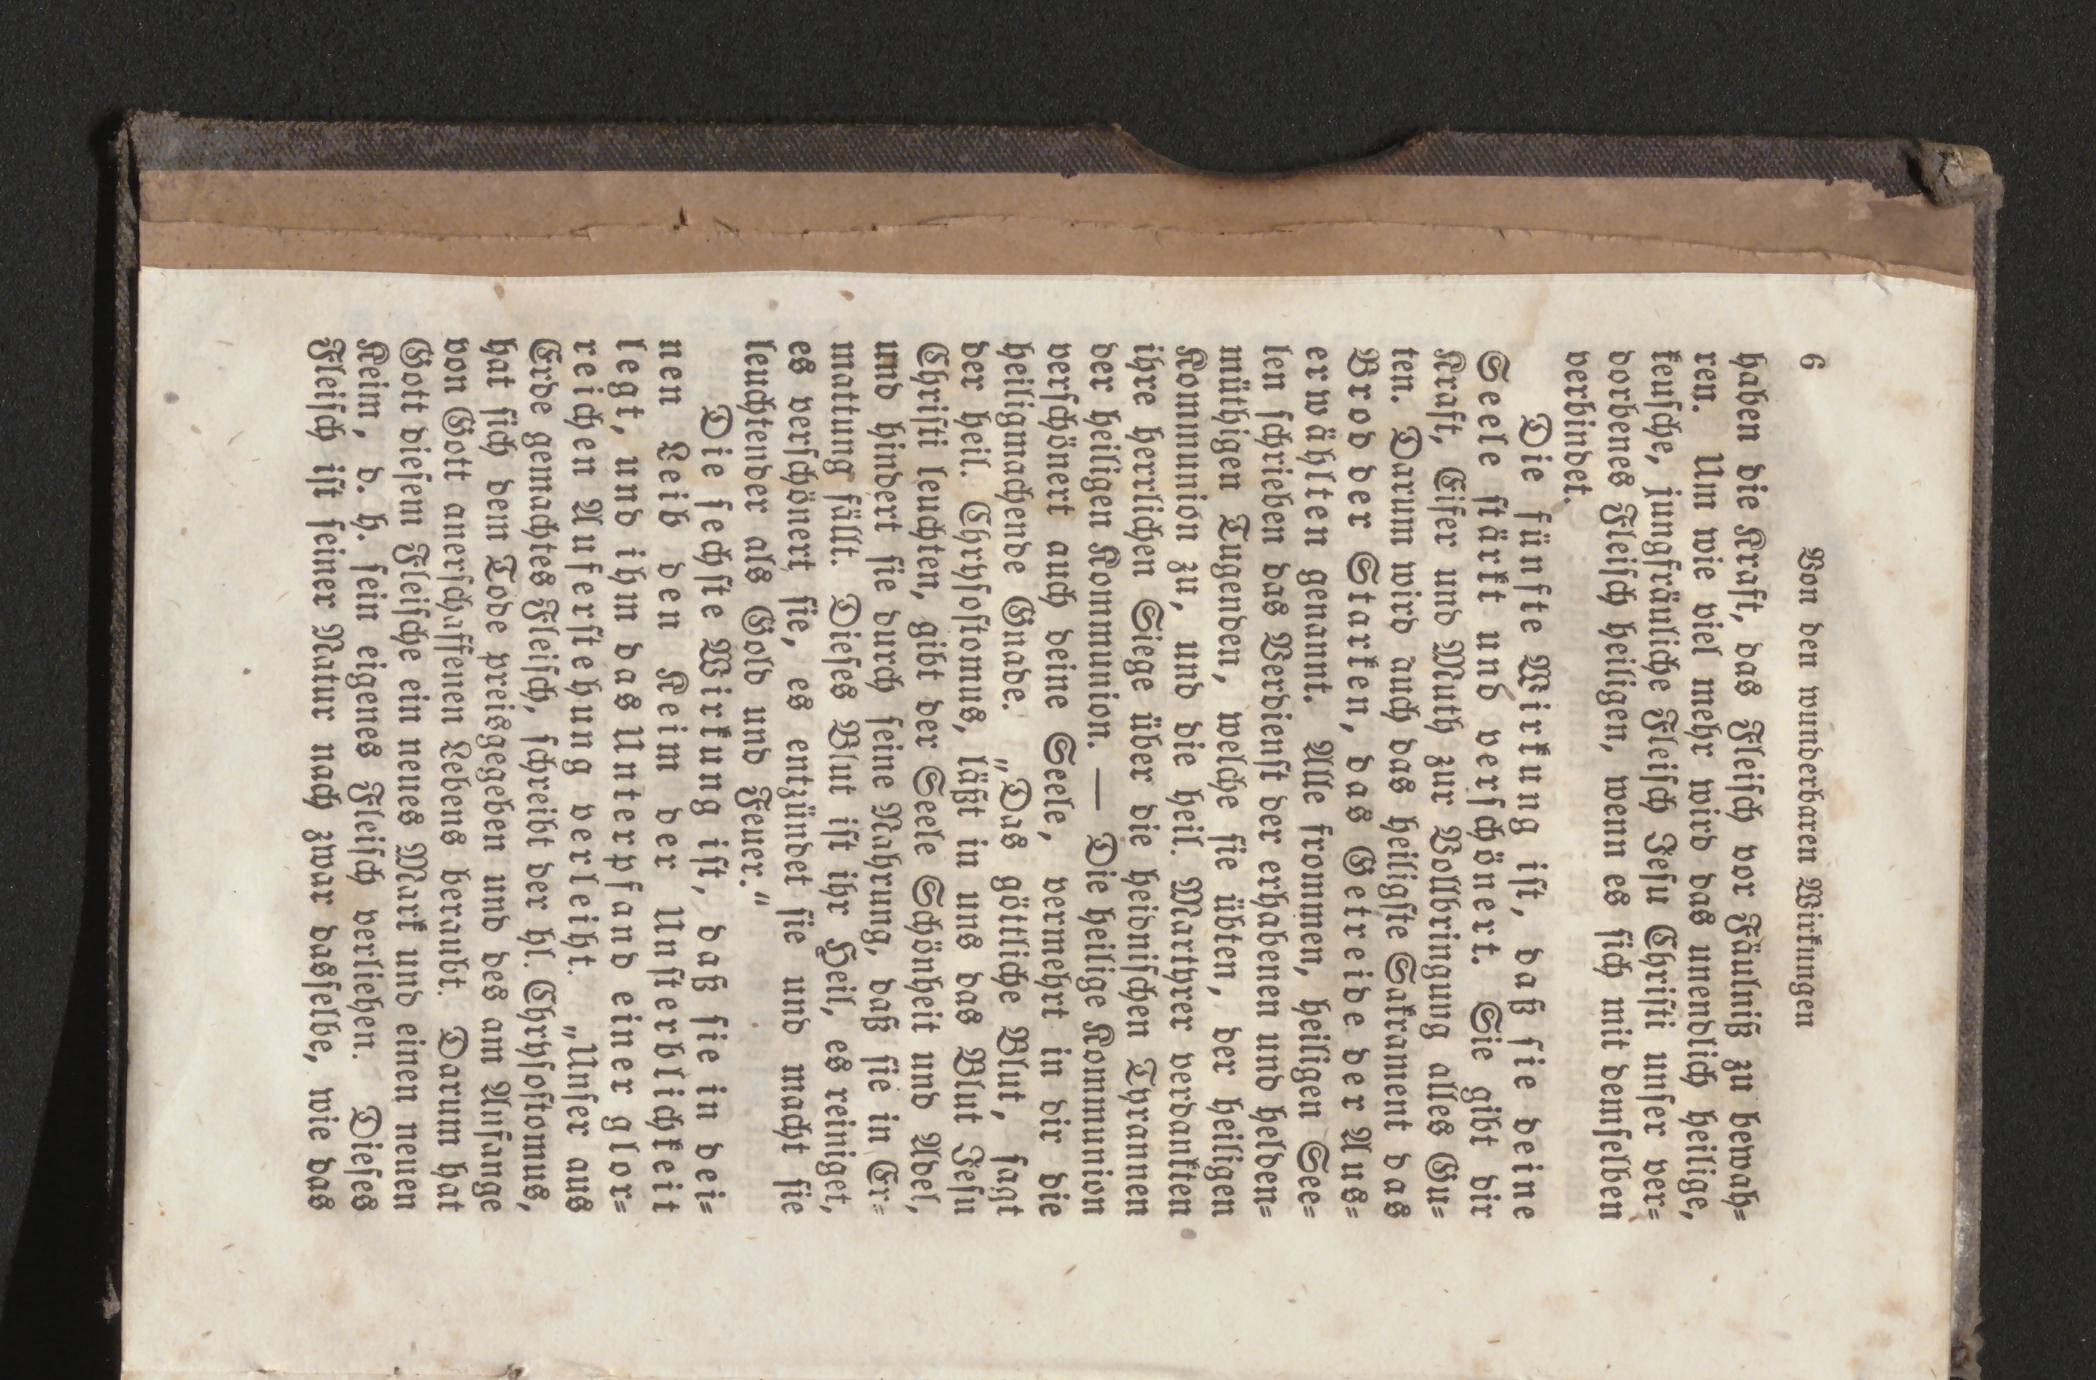 6 Von den wunderbaren Wirkungen
haben die Kraft, das Fleisch vor Fäulniß zu bewah=
ren. Um wie viel mehr wird das unendlich heilige,
keusche, jungfräuliche Fleisch Jesu Christi unser ver=
dorbenes Fleisch heiligen, wenn es sich mit demselben
verbindet.
Die fünfte Wirkung ist, daß sie deine
Seele stärkt und verschönert. Sie gibt dir
Kraft, Eifer und Muth zur Vollbringung alles Gu=
ten. Darum wird auch das heiligste Sakrament das
Brod der Starken, das Getreide der Aus=
erwählten genannt. Alle frommen, heiligen See=
len schrieben das Verdienst der erhabenen und helden=
müthigen Tugenden, welche sie übten, der heiligen
Kommunion zu, und die heil. Martyrer verdankten
ihre herrlichen Siege über die heidnischen Tyrannen
der heiligen Kommunion. — Die heilige Kommunion
verschönert auch deine Seele, vermehrt in dir die
heiligmachende Gnade. „Das göttliche Blut, sagt
der heil. Chrysostomus, läßt in uns das Blut Jesu
Christi leuchten, gibt der Seele Schönheit und Adel,
und hindert sie durch seine Nahrung, daß sie in Er=
mattung fällt. Dieses Blut ist ihr Heil, es reiniget,
es verschönert sie, es entzündet sie und macht sie
leuchtender als Gold und Feuer.“
Die sechste Wirkung ist, daß sie in dei=
nen Leib den Keim der Unsterblichkeit
legt, und ihm das Unterpfand einer glor=
reichen Auferstehung verleiht. „Unser aus
Erde gemachtes Fleisch, schreibt der hl. Chrysostomus,
hat sich dem Tode preisgegeben und des am Anfange
von Gott anerschaffenen Lebens beraubt. Darum hat
Gott diesem Fleische ein neues Mark und einen neuen
Keim, d. h. sein eigenes Fleisch verliehen. Dieses
Fleisch ist seiner Natur nach zwar dasselbe, wie das